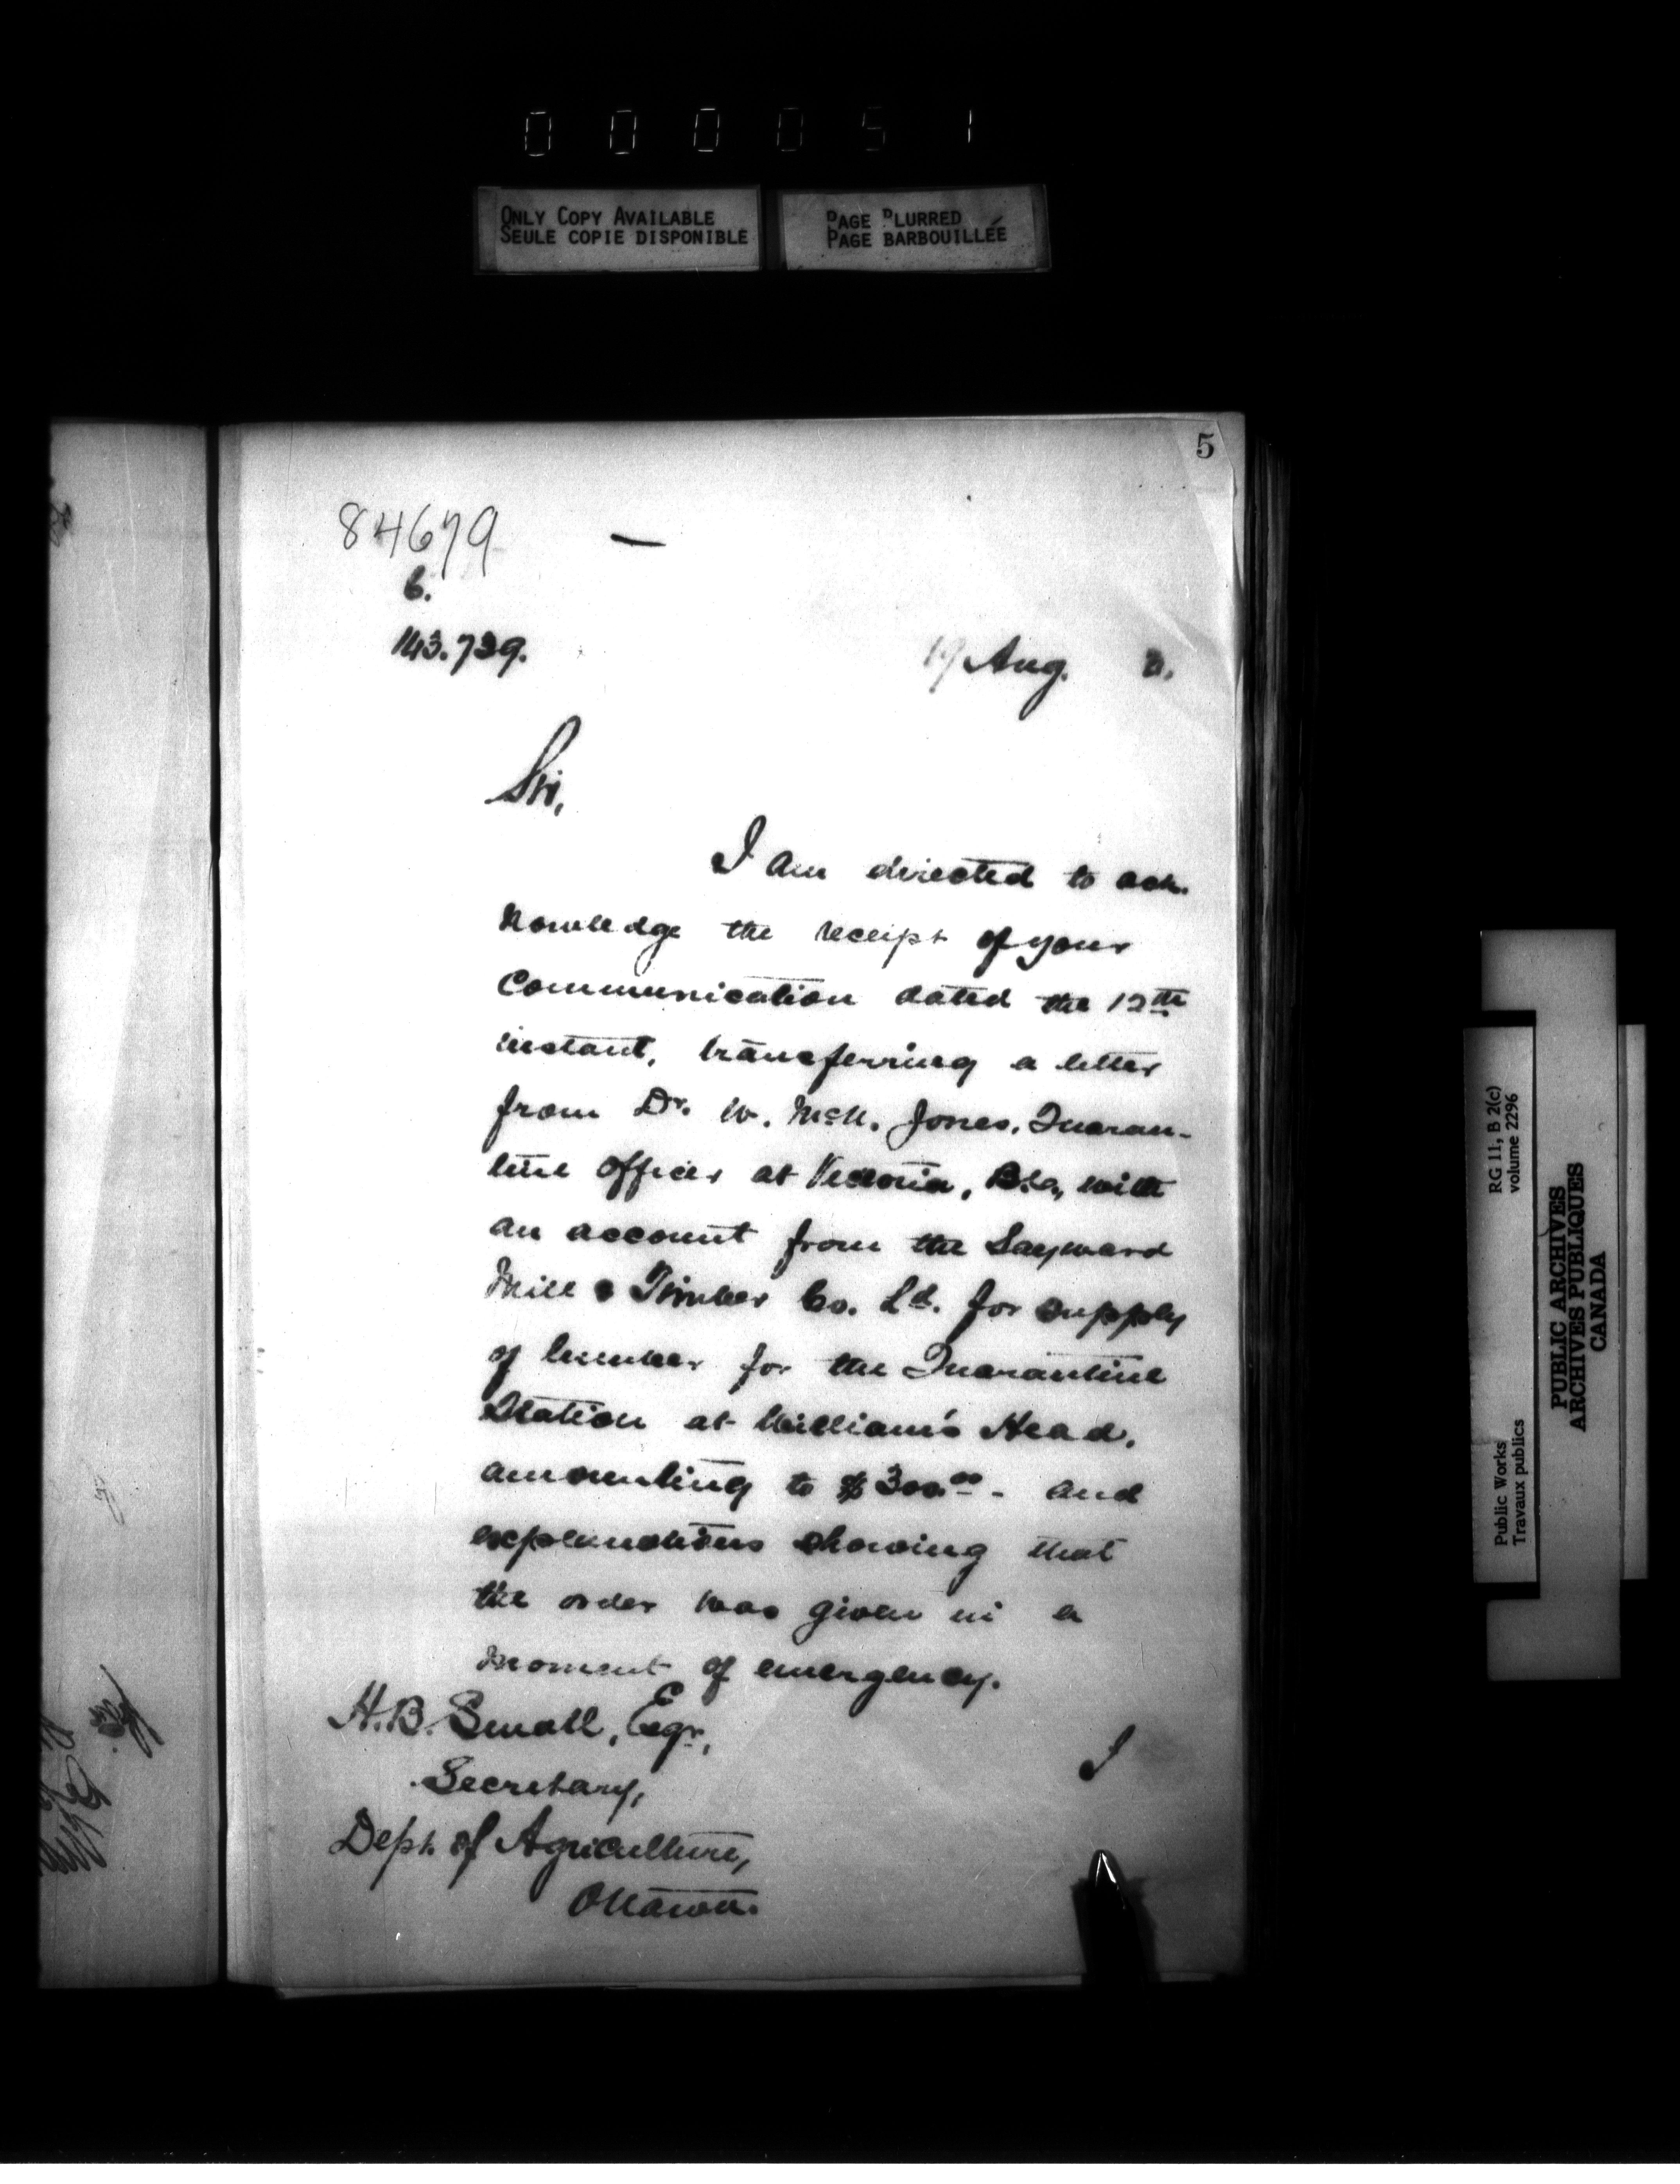 000051
ONLY COPY AVAILABLE
SEULE COPIE DISPONIBLE
PAGE BLURRED
PAGE BARBOUILLÉE
5
84679
6.
143.739.
Aug.
Sir,
I am directed to ack-
nowledge the receipt of your
communication dated the 12th
instant, transferring a letter
from Dr. W. McN. Jones, Quaran-
tine Officer at Victoria, B.C., with
an account from the Sayward
Mill & Timber Co. Ld. for supply
of lumber for the Quarantine
Station at William's Head,
amounting to $300.00 - and
explanations showing that
the order was given in a
moment of emergency.
H.B. Small, Esqr.,
Secretary,
Dept. of Agriculture,
Ottawa.
I
RG 11, B 2(c)
volume 2296
Public Works
Travaux publics
PUBLIC ARCHIVES
ARCHIVES PUBLIQUES
CANADA